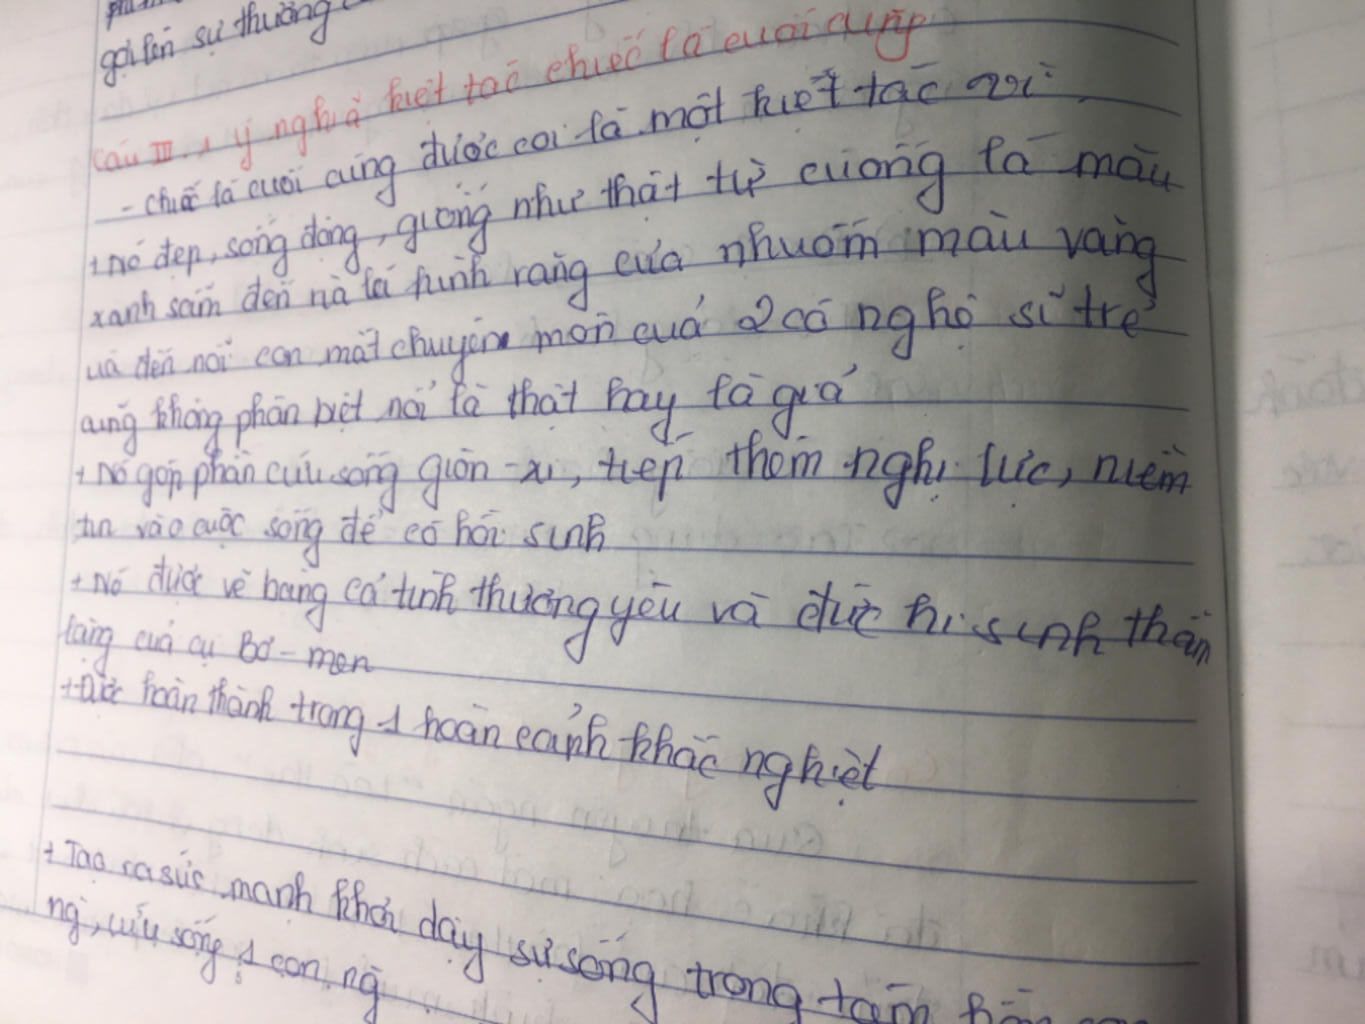 gợi lên sự thương
Câu III. 1 ý nghĩa kiệt tác chiếc lá cuối cùng
- chiếc lá cuối cùng được coi là một kiệt tác vì:
+ nó đẹp, sống động, giống như thật từ cuống lá màu
xanh sẫm đến rìa lá hình răng cưa nhuốm màu vàng
úa đến nỗi con mắt chuyên môn của 2 cô nghệ sĩ trẻ
cũng không phân biệt nổi là thật hay là giả
+ Nó góp phần cứu sống giôn-xi, tiếp thêm nghị lực, niềm
tin vào cuộc sống để cô hồi sinh
+ Nó được vẽ bằng cả tình thương yêu và đức hi sinh thầm
lặng của cụ Bơ-men
+ Được hoàn thành trong 1 hoàn cảnh khắc nghiệt
+ Tạo ra sức mạnh khơi dậy sự sống trong tâm hồn
ng, cứu sống 1 con ng